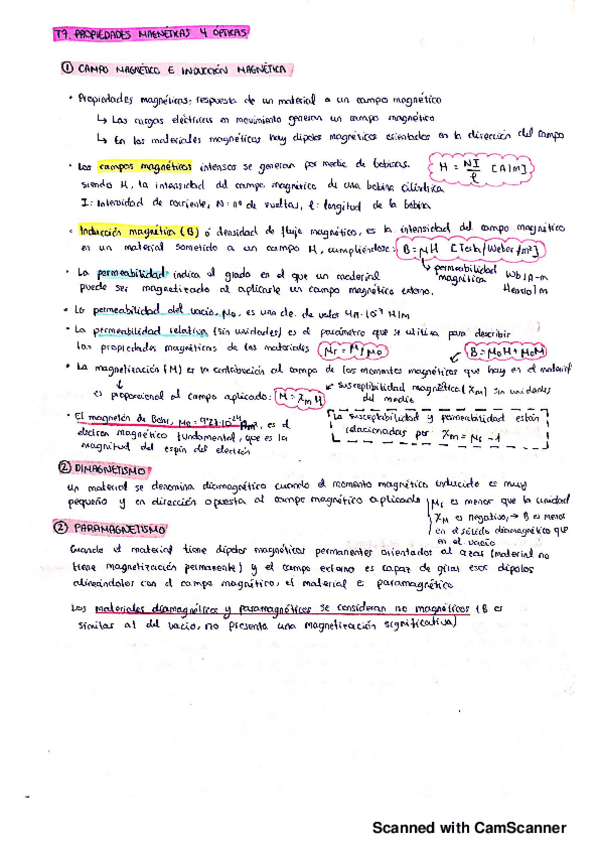 T7. PROPIEDADES MAGNÉTICAS Y ÓPTICAS
① CAMPO MAGNÉTICO E INDUCCIÓN MAGNÉTICA
· Propiedades magnéticas: respuesta de un material a un campo magnético
↳ Las cargas eléctricas en movimiento generan un campo magnético
↳ En los materiales magnéticos hay dipolos magnéticos orientados en la dirección del campo
· Los campos magnéticos intensos se generan por medio de bobinas.
H = NI/ℓ [A/m]
siendo H, la intensidad del campo magnético de una bobina cilíndrica
I: Intensidad de corriente, N: nº de vueltas, ℓ: longitud de la bobina
· Inducción magnética (B) ó densidad de flujo magnético, es la intensidad del campo magnético
en un material sometido a un campo H, cumpliéndose: B = μH [Tesla/Weber/m²]
↳ permeabilidad magnética
Wb/A-m
Henrio/m
· La permeabilidad indica el grado en el que un material
puede ser magnetizado al aplicarle un campo magnético externo.
· La permeabilidad del vacío, μ₀, es una cte. de valor 4π·10⁻⁷ H/m
· La permeabilidad relativa (sin unidades) es el parámetro que se utiliza para describir
las propiedades magnéticas de los materiales μr = μ/μ₀
B = μ₀H + μ₀M
· La magnetización (M) es la contribución al campo de los momentos magnéticos que hay en el material
↓
es proporcional al campo aplicado: M = χm H
susceptibilidad magnética (χm) sin unidades
del medio
· El magnetón de Bohr, μB = 9'27·10⁻²⁴ Am², es el
electrón magnético fundamental, que es la
magnitud del espín del electrón
La susceptibilidad y permeabilidad están
relacionadas por: χm = μr - 1
② DIMAGNETISMO
Un material se denomina diamagnético cuando el momento magnético inducido es muy
pequeño y en dirección opuesta al campo magnético aplicado
μr es menor que la unidad
χm es negativo, → B es menor
en el sólido diamagnético que
en el vacío
② PARAMAGNETISMO
Cuando el material tiene dipolos magnéticos permanentes orientados al azar (material no
tiene magnetización permanente) y el campo externo es capaz de girar esos dipolos
alineándolos con el campo magnético, el material es paramagnético
Los materiales diamagnéticos y paramagnéticos se consideran no magnéticos (B es
similar al del vacío, no presenta una magnetización significativa)
Scanned with CamScanner